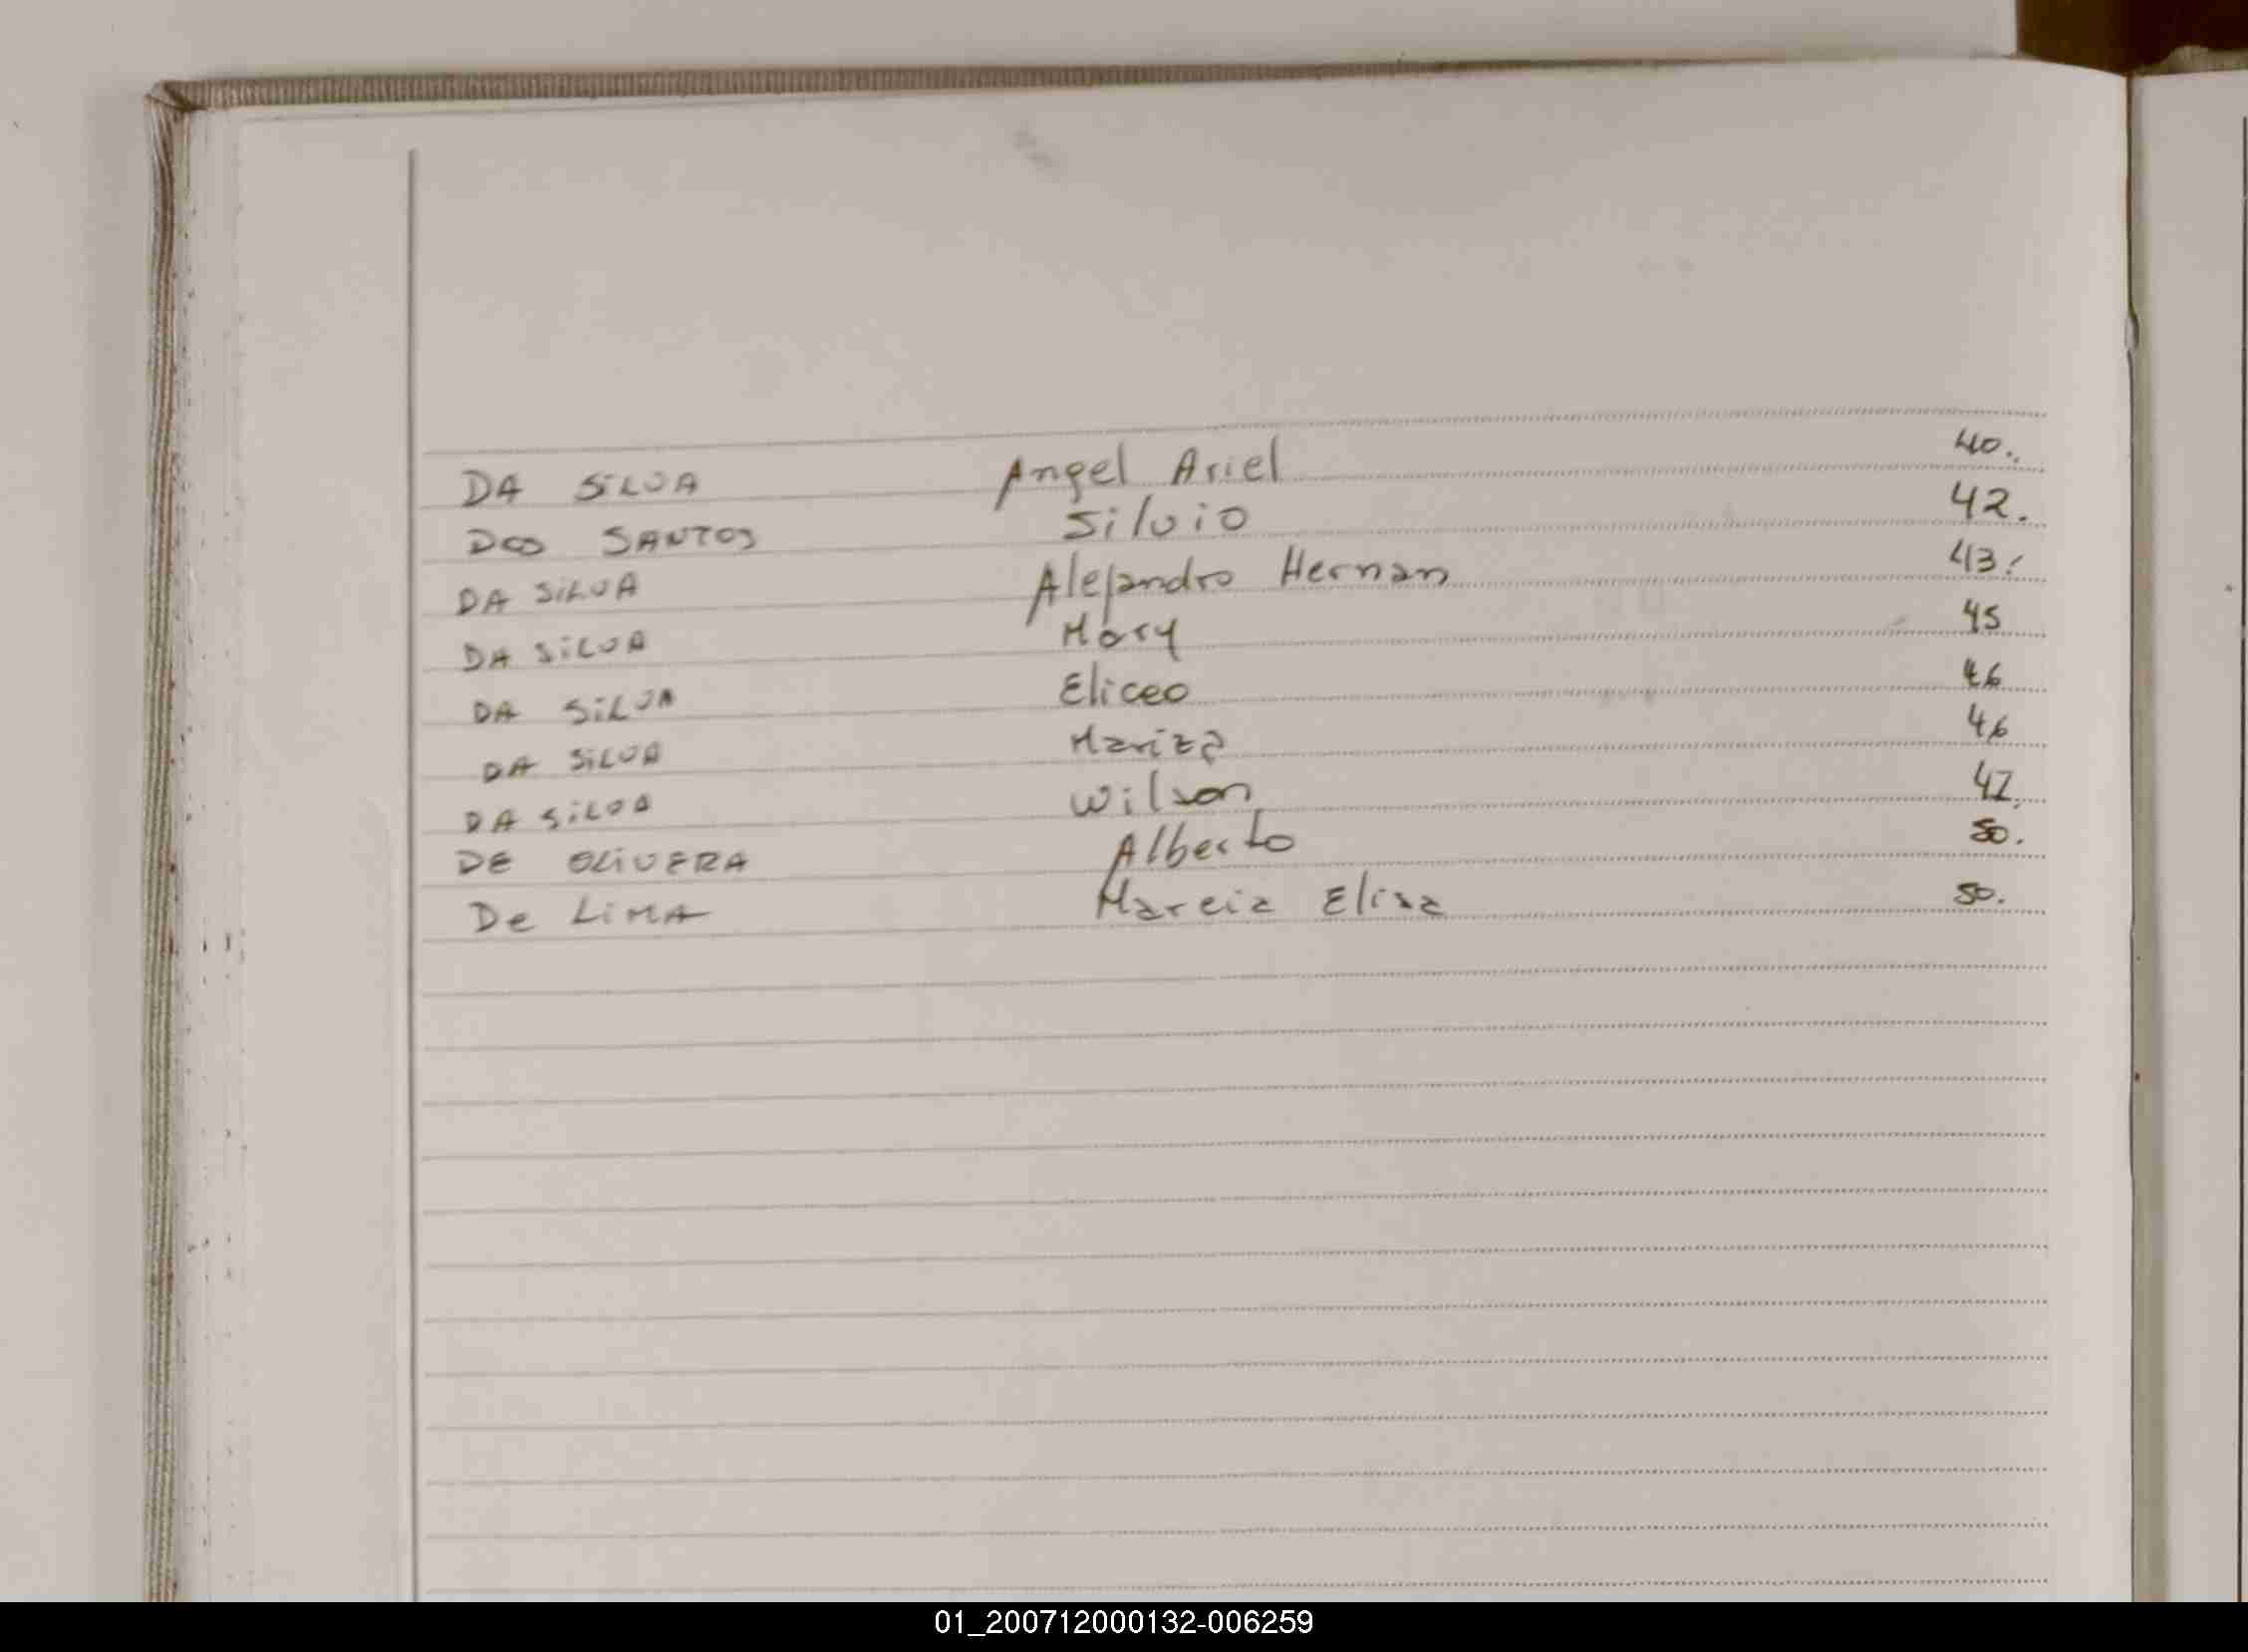 DA SILVA Angel Ariel 40.
DOS SANTOS Silvio 42.
DA SILVA Alejandro Hernan 43.
DA SILVA Mary 45
DA SILVA Eliceo 46
DA SILVA Mariza 46
DA SILVA Wilson 47.
DE OLIVERA Alberto 50.
De LIMA Marcia Elisa 50.
01_200712000132-006259